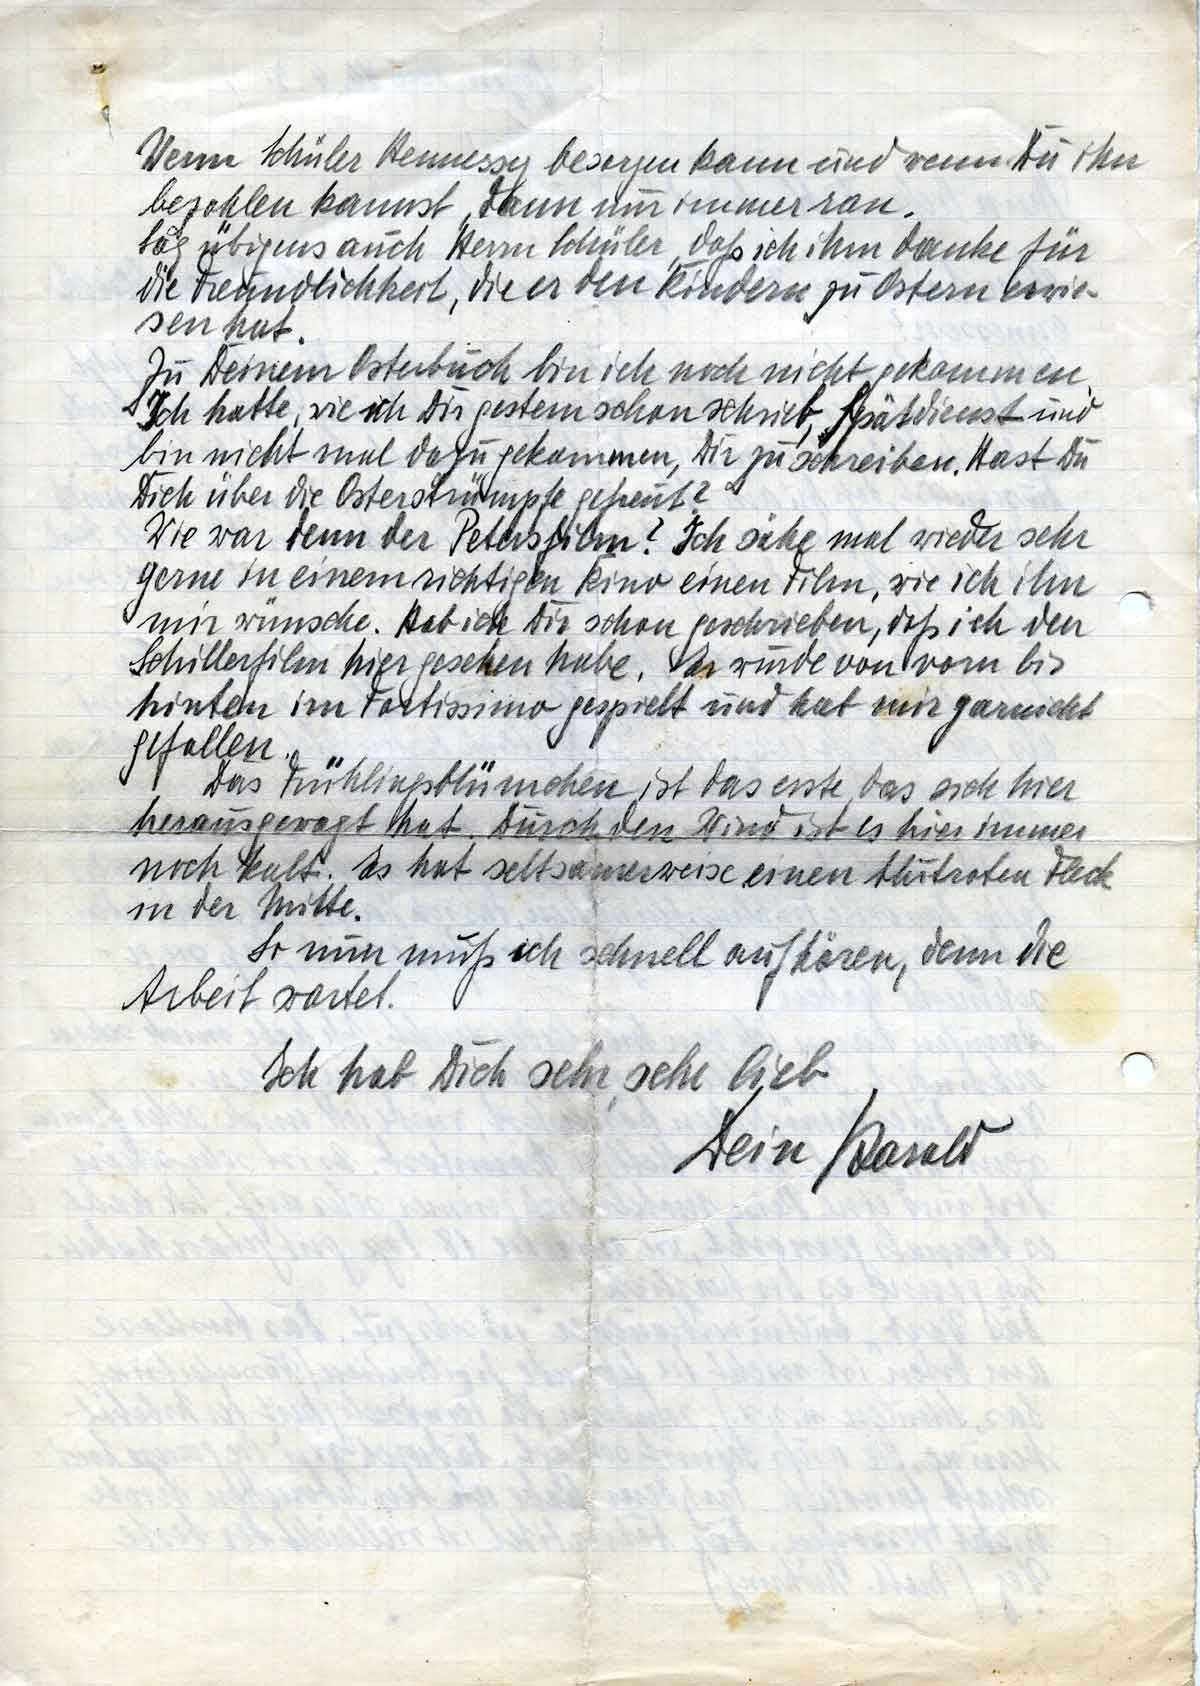 Wenn Schüler Hennessy besorgen kann und wenn Du ihn
bezahlen kannst, dann nur immer ran.
Sag übigens auch Herrn Schüler, daß ich ihm danke für
die Freundlichkeit, die er den Kindern zu Ostern erwie-
sen hat.
Zu Deinem Osterbuch bin ich noch nicht gekommen.
Ich hatte, wie ich Dir gestern schon schrieb, Spätdienst und
bin nicht mal dazu gekommen, Dir zu schreiben. Hast Du
Dich über die Osterstrümpfe gefreut?
Wie war denn der Petersfilm? Ich sähe mal wieder sehr
gerne in einem richtigen Kino einen Film, wie ich ihn
mir wünsche. Hab ich Dir schon geschrieben, daß ich den
Schillerfilm hier gesehen habe. Er wurde von vorn bis
hinten im Fortissimo gespielt und hat mir garnicht
gefallen.
Das Frühlingsblümchen ist das erste, das sich hier
herausgewagt hat. Durch den Wind ist es hier immer
noch kalt. Es hat seltsamerweise einen blutroten Fleck
in der Mitte.
So nun muß ich schnell aufhören, denn die
Arbeit wartet.
Ich hab Dich sehr, sehr lieb
Dein Harald